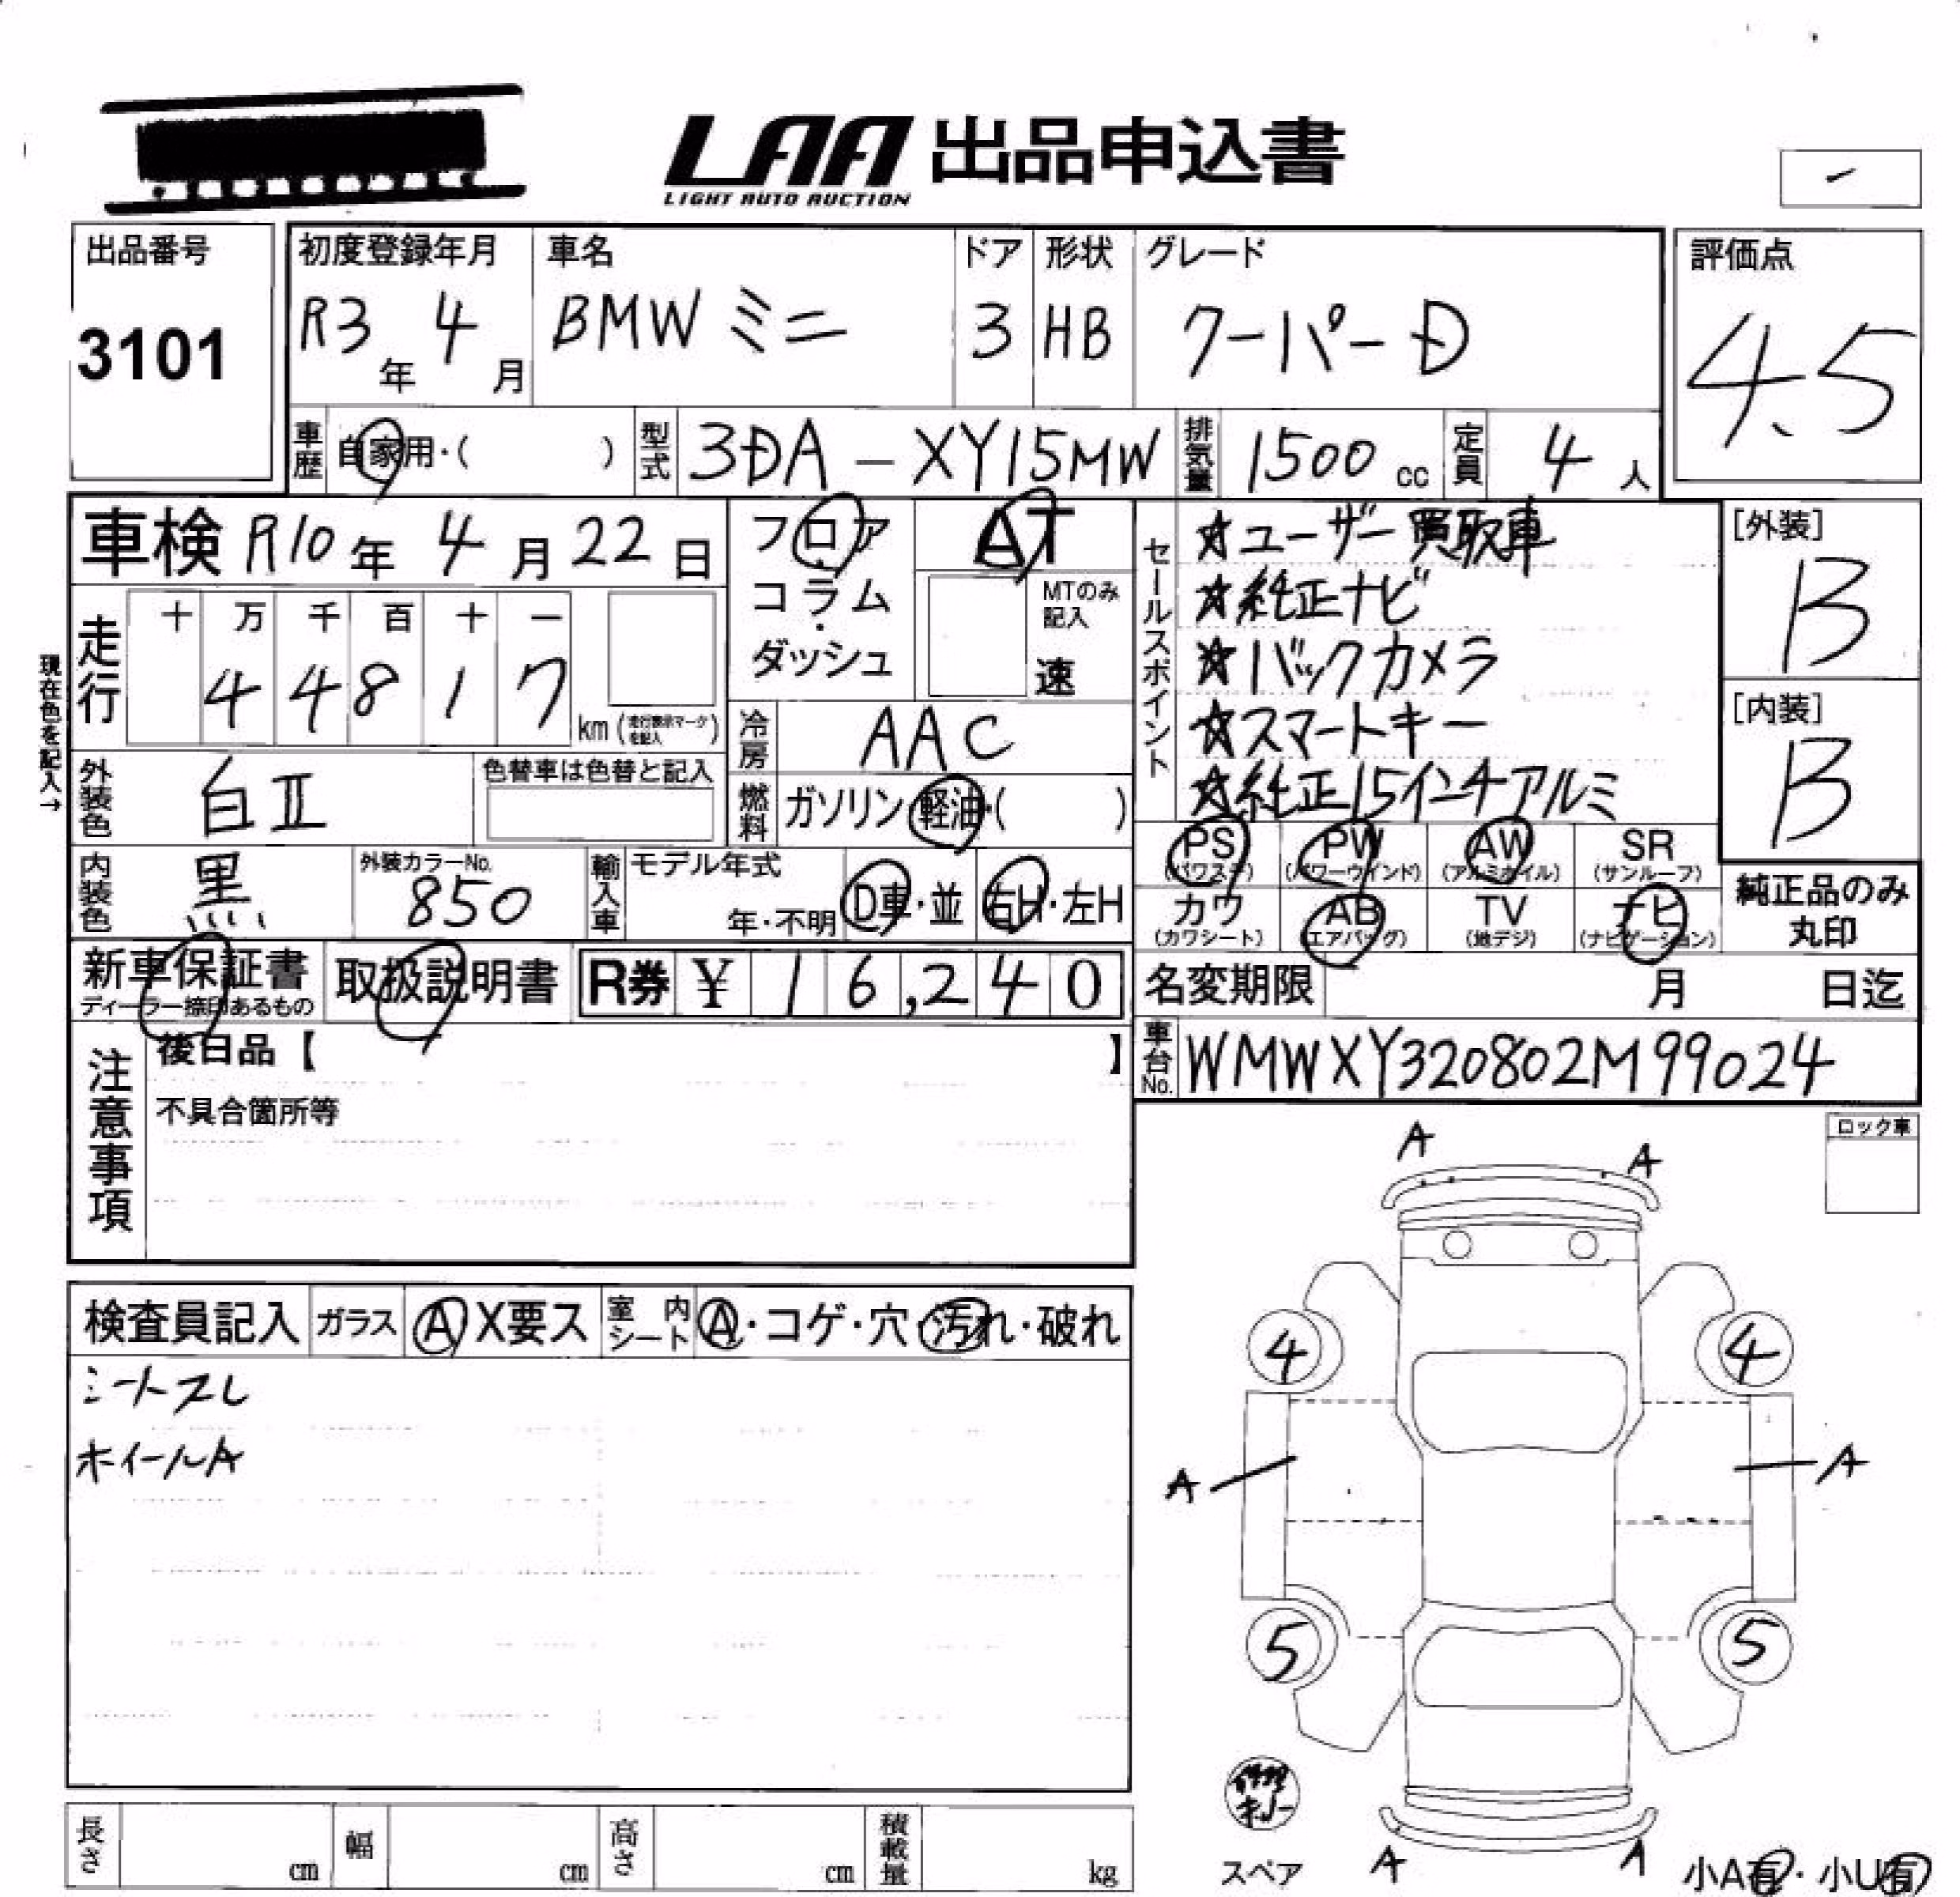 LAA 出品申込書
LIGHT AUTO AUCTION
出品番号
3101
初度登録年月
R3年 4月
車名
BMW ミニ
ドア
3
形状
HB
グレード
クーパーD
評価点
4.5
車歴 自家用・( )
型式 3DA-XY15MW
排気量 1500 cc
定員 4人
車検 R10年 4月 22日
フロア・コラム・ダッシュ
AT
MTのみ記入
速
セールスポイント
☆ユーザー買取車
☆純正ナビ
☆バックカメラ
☆スマートキー
☆純正15インチアルミ
[外装]
B
[内装]
B
現在色を記入→
走行
十 万 千 百 十 一
4 4 8 1 7
km (走行表示マークを記入)
冷房 AAC
外装色 白II
色替車は色替と記入
燃料 ガソリン・軽油・( )
PS (パワステ) PW (パワーウインド) AW (アルミホイル) SR (サンルーフ)
カワ (カワシート) AB (エアバッグ) TV (地デジ) ナビ (ナビゲーション)
純正品のみ丸印
内装色 黒
外装カラーNo. 850
輸入車 モデル年式
年・不明
D車・並
右H・左H
新車保証書
ディーラー捺印あるもの
取扱説明書
R券 ¥ 16,240
名変期限 月 日迄
車台No. WMWXY320802M99024
注意事項
後日品【 】
不具合箇所等
ロック車
検査員記入 ガラス A X要ス 室内シート A・コゲ・穴・汚れ・破れ
シートスレ
ホイールA
A A
4 4
A A
5 5
スペア
A A
小A有・小U有
長さ cm 幅 cm 高さ cm 積載量 kg